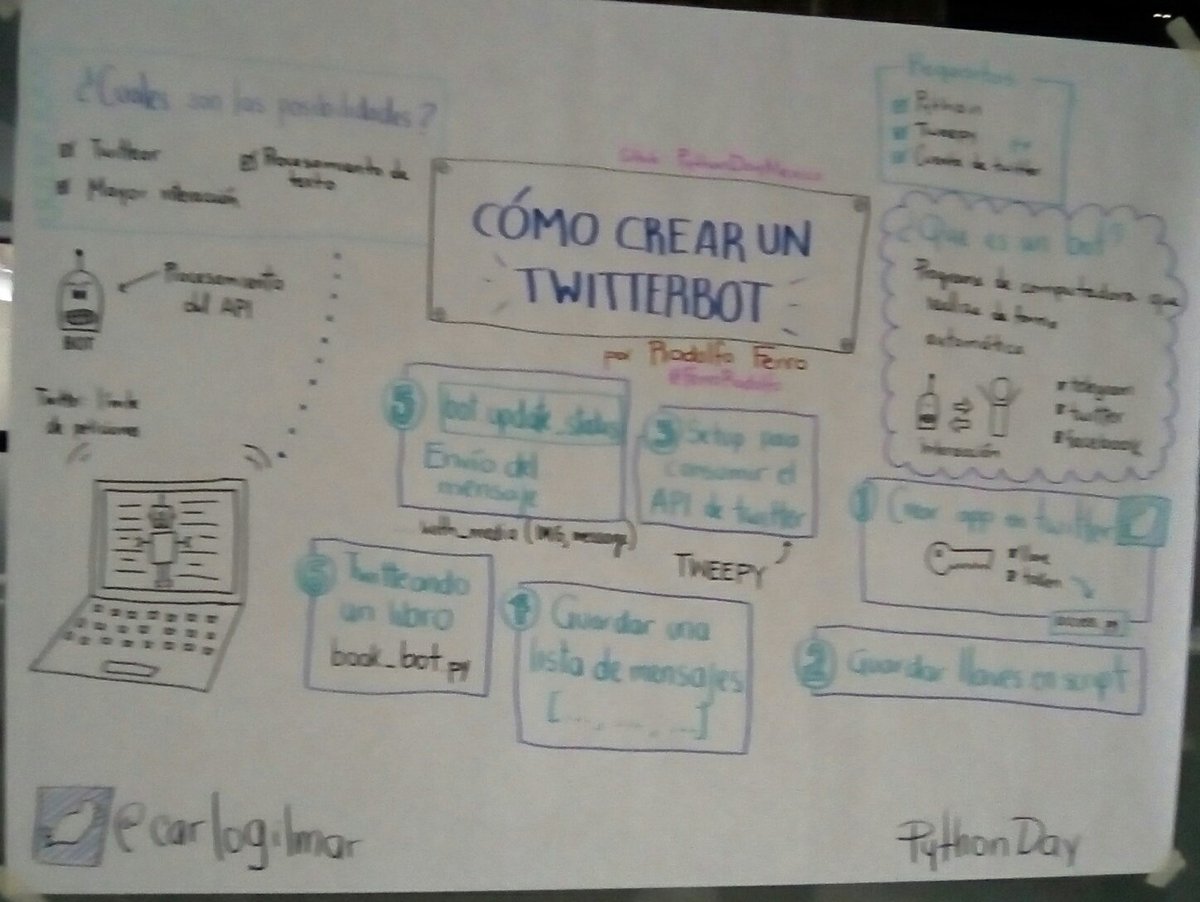 ¿Cuáles son las posibilidades?
Twitter
Mayor interacción
Procesamiento de
texto
CÓMO CREAR UN
TWITTERBOT
por Rodolfo Ferro
@FerroRodolfo
Requisitos
Python
Tweepy
Cuenta de twitter
¿Qué es un bot?
Programa de computadora que
realiza de forma
automática
Interacción
telegram
twitter
facebook
Procesamiento
del API
BOT
Twitter
de
1 Crear app en twitter
llave
token
2 Guardar llaves en script
3 Setup para
consumir el
API de twitter
TWEEPY
4 Guardar una
lista de mensajes
[..., ..., ...]
5 bot update_status
Envío del
mensaje
with_media (IMG, message)
Twitteando
un libro
book_bot.py
@carlogilmar
PythonDay